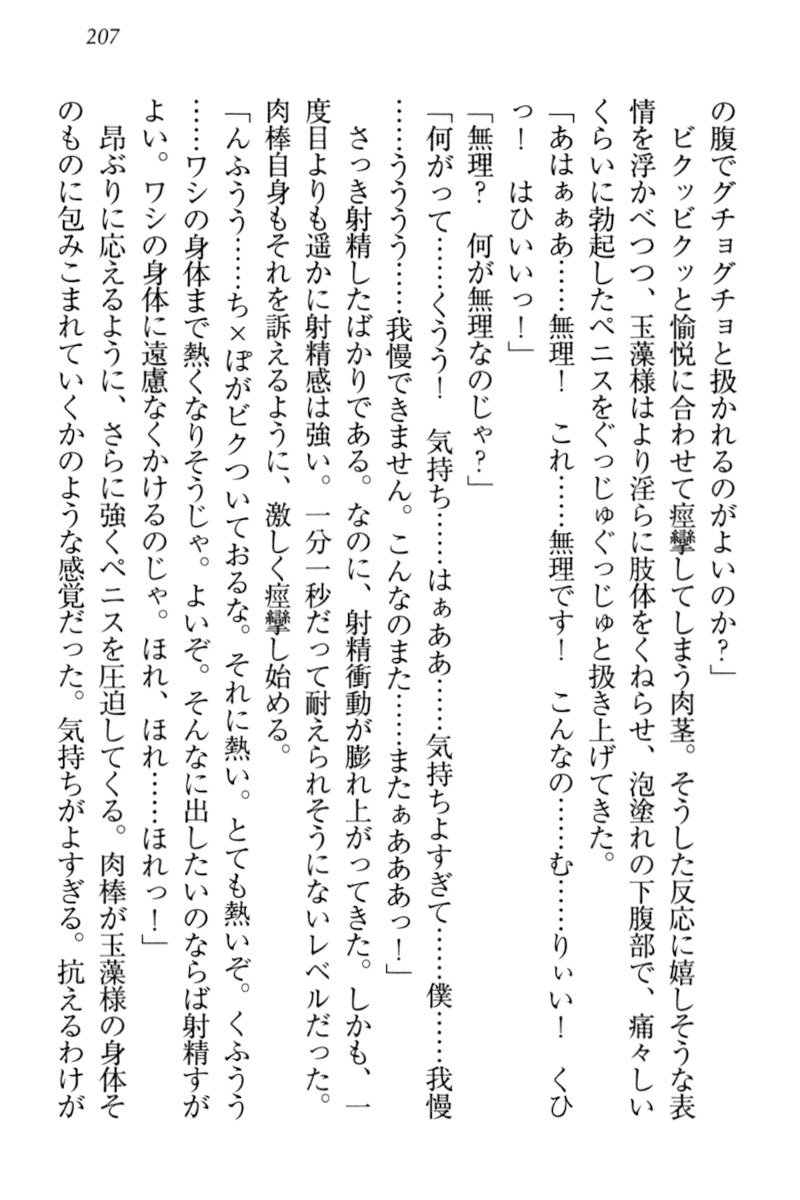 207
の腹でグチョグチョと扱かれるのがよいのか?」
ビクッビクッと愉悦に合わせて痙攣してしまう肉茎。そうした反応に嬉しそうな表
情を浮かべつつ、玉藻様はより淫らに肢体をくねらせ、泡塗れの下腹部で、痛々しい
くらいに勃起したペニスをぐっじゅぐっじゅと扱き上げてきた。
「あはぁぁあ……無理! これ……無理です! こんなの……む……りぃい! くひ
っ! はひいいっ!」
「無理? 何が無理なのじゃ?」
「何がって……くうう! 気持ち……はぁああ……気持ちよすぎて……僕……我慢
……うううう……我慢できません。こんなのまた……またぁあああっ!」
さっき射精したばかりである。なのに、射精衝動が膨れ上がってきた。しかも、一
度目よりも遥かに射精感は強い。一分一秒だって耐えられそうにないレベルだった。
肉棒自身もそれを訴えるように、激しく痙攣し始める。
「んふうう……ち×ぽがビクついておるな。それに熱い。とても熱いぞ。くふうう
……ワシの身体まで熱くなりそうじゃ。よいぞ。そんなに出したいのならば射精すが
よい。ワシの身体に遠慮なくかけるのじゃ。ほれ、ほれ……ほれっ!」
昂ぶりに応えるように、さらに強くペニスを圧迫してくる。肉棒が玉藻様の身体そ
のものに包みこまれていくかのような感覚だった。気持ちがよすぎる。抗えるわけが